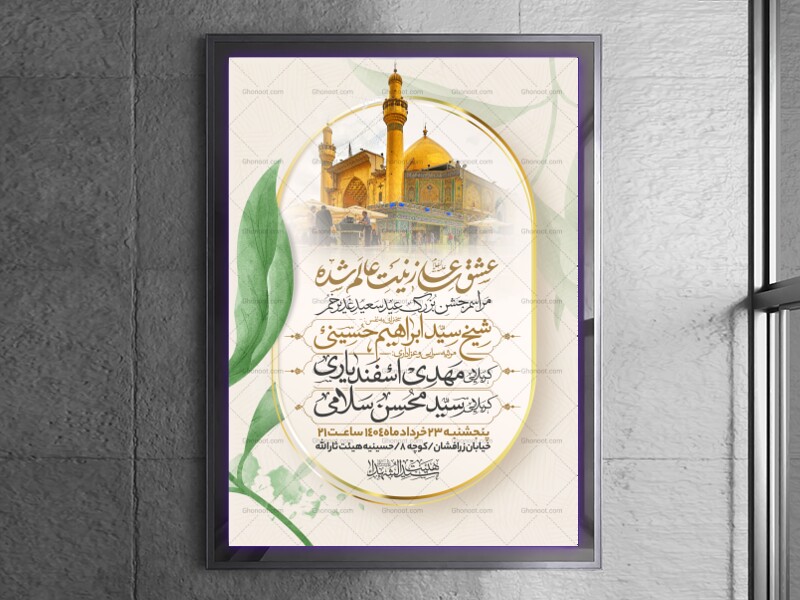 عشق علی زینت عالم شده
مراسم جشن بزرگ عید سعید غدیرخم
سخنرانی به نفس:
شیخ سید ابراهیم حسینی
مرثیه سرایی و عزاداری:
کربلایی مهدی اسفندیاری
کربلایی سید محسن سلامی
پنجشنبه ۲۳ خرداد ماه ۱۴۰۴ ساعت ۲۱
خیابان زرافشان/کوچه ۸/حسینیه هیئت ثارالله
هیئت سیدالشهدا
Ghonoot.com